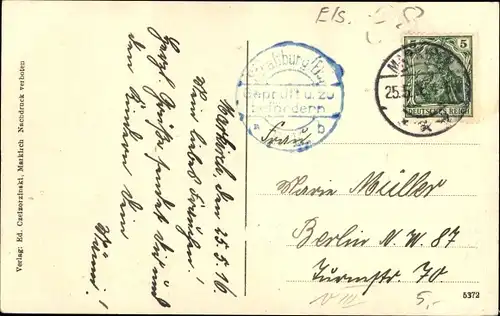 Els.
Verlag: Ed. Czetzorzinski, Markirch Nachdruck verboten
Markirch, den 25.5.16
Mein liebes Frauchen!
Herzl. Grüße sendet Dir und
den Kindern Dein
Männi!
Straßburg (Els.)
Geprüft u. zu
befördern
b
5
DEUTSCHES REICH
25.5
Frau
Marie Müller
Berlin N.W. 87
Turmstr. 70
VIII
5,-
5372